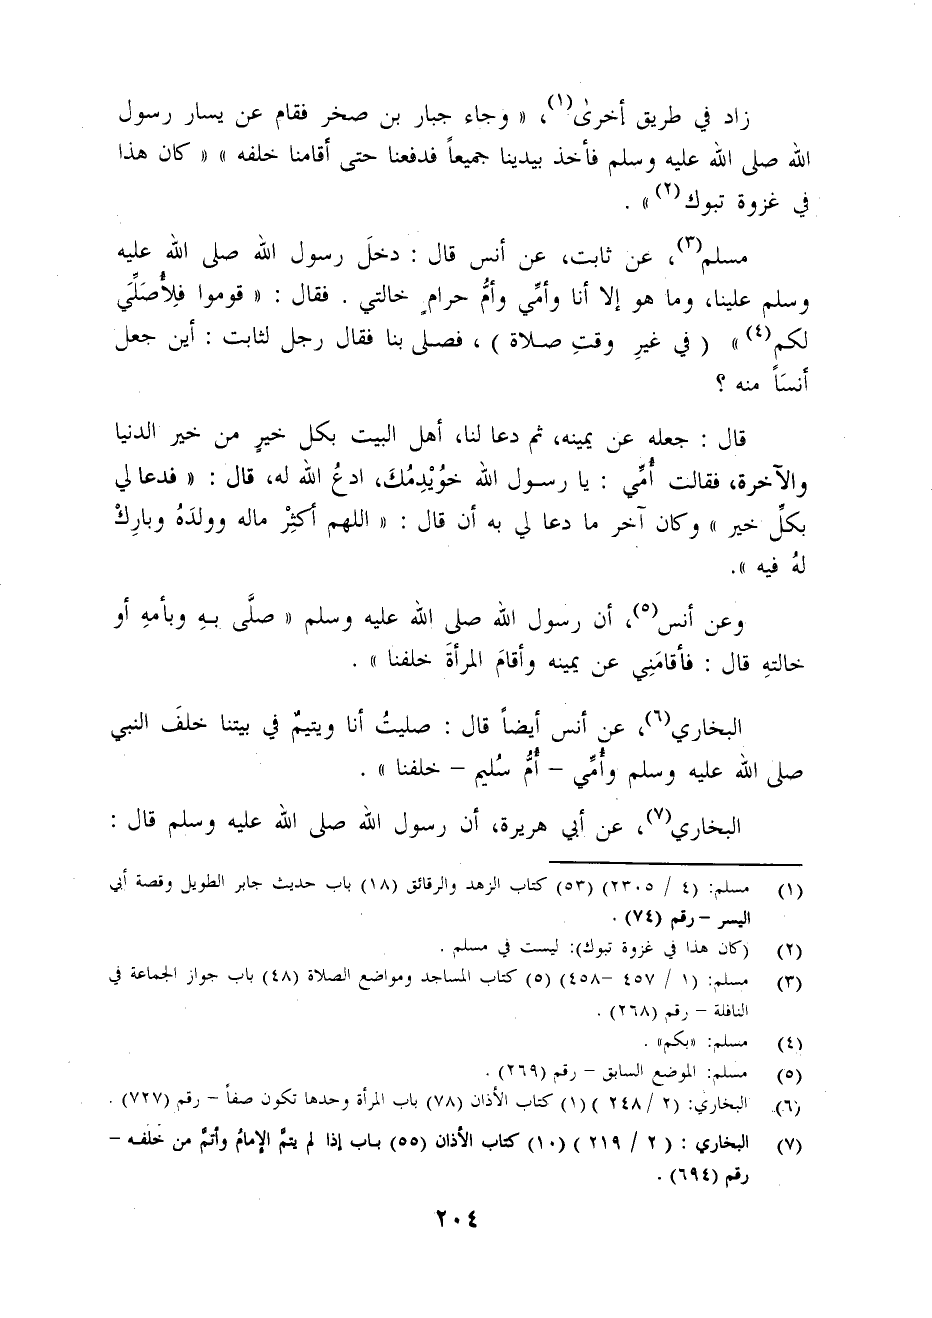 زاد في طريق أخرىٰ(١)، « وجاء جبار بن صخر فقام عن يسار رسول
الله صلى الله عليه وسلم فأخذ بيدينا جميعاً فدفعنا حتى أقامنا خلفه » « كان هذا
في غزوة تبوك(٢) » .
مسلم(٣)، عن ثابت، عن أنس قال : دخلَ رسول الله صلى الله عليه
وسلم علينا، وما هو إلا أنا وأمِّي وأمُّ حرامٍ خالتي . فقال : « قوموا فلِأُصَلِّيَ
لكم(٤) » ( في غيرِ وقتِ صلاة ) ، فصلى بنا فقال رجل لثابت : أين جعل
أنسَاً منه ؟
قال : جعله عن يمينه، ثم دعا لنا، أهل البيت بكل خيرٍ من خير الدنيا
والآخرة، فقالت أُمِّي : يا رسول الله خوُيْدِمُك، ادعُ الله له، قال : « فدعا لي
بكلِّ خير » وكان آخر ما دعا لي به أن قال : « اللهم أكثِرْ ماله وولدَهُ وبارِكْ
لهُ فيه ».
وعن أنس(٥)، أن رسول الله صلى الله عليه وسلم « صلَّى بهِ وبأمهِ أو
خالتهِ قال : فأقامَنِي عن يمينه وأقامَ المرأةَ خلفنا » .
البخاري(٦)، عن أنس أيضاً قال : صليتُ أنا ويتيمٌ في بيتنا خلفَ النبي
صلى الله عليه وسلم وأُمِّي – أُمُّ سُليم – خلفنا » .
البخاري(٧)، عن أبي هريرة، أن رسول الله صلى الله عليه وسلم قال :
(١) مسلم: (٤ / ٢٣٠٥) (٥٣) كتاب الزهد والرقائق (١٨) باب حديث جابر الطويل وقصة أبي
اليسر – رقم (٧٤) .
(٢) (كان هذا في غزوة تبوك): ليست في مسلم .
(٣) مسلم: (١ / ٤٥٧ –٤٥٨) (٥) كتاب المساجد ومواضع الصلاة (٤٨) باب جواز الجماعة في
النافلة – رقم (٢٦٨) .
(٤) مسلم: «بكم» .
(٥) مسلم: الموضع السابق – رقم (٢٦٩) .
(٦) البخاري: (٢ / ٢٤٨ ) (١) كتاب الأذان (٧٨) باب المرأة وحدها تكون صفاً – رقم (٧٢٧) .
(٧) البخاري : ( ٢ / ٢١٩ ) (١٠) كتاب الأذان (٥٥) باب إذا لم يتمَّ الإمامُ وأتمَّ من خلفه –
رقم (٦٩٤) .
٢٠٤